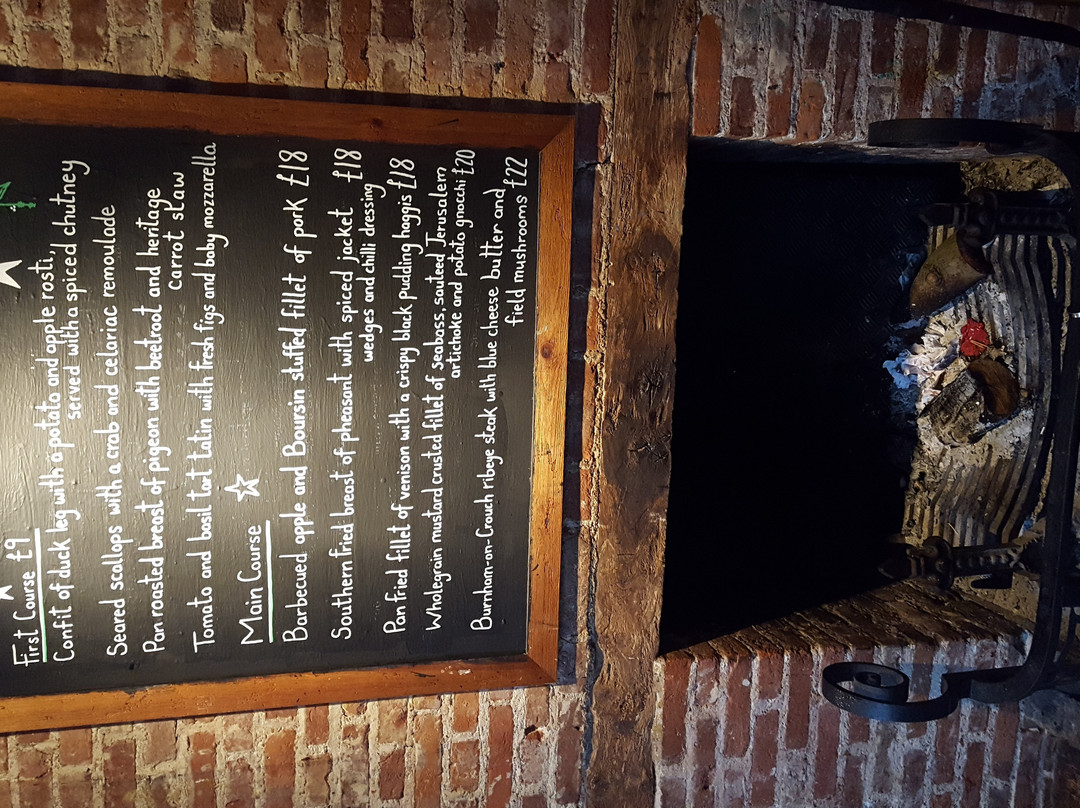 First Course £9
Confit of duck leg with a potato and apple rosti,
served with a spiced chutney
Seared scallops with a crab and celariac remoulade
Pan roasted breast of pigeon with beetroot and heritage
carrot slaw
Tomato and basil tart tatin with fresh figs and baby mozzarella
Main Course
Barbecued apple and Boursin stuffed fillet of pork £18
Southern fried breast of pheasant with spiced jacket £18
wedges and chilli dressing
Pan fried fillet of venison with a crispy black pudding haggis £18
Wholegrain mustard crusted fillet of seabass, sauteed Jerusalem
artichoke and potato gnocchi £20
Burnham-on-Crouch ribeye steak with blue cheese butter and
field mushrooms £22